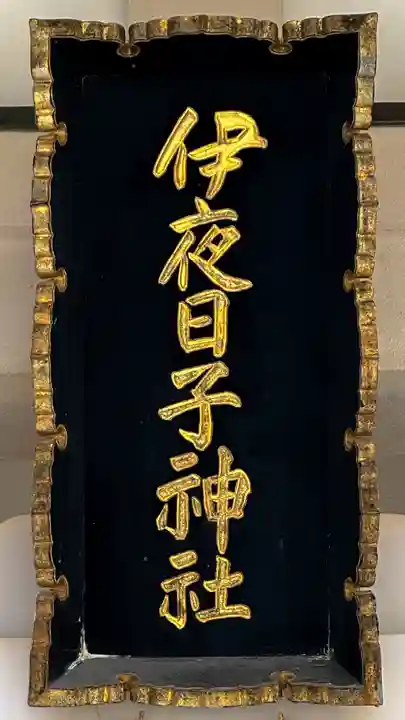 伊夜日子神社